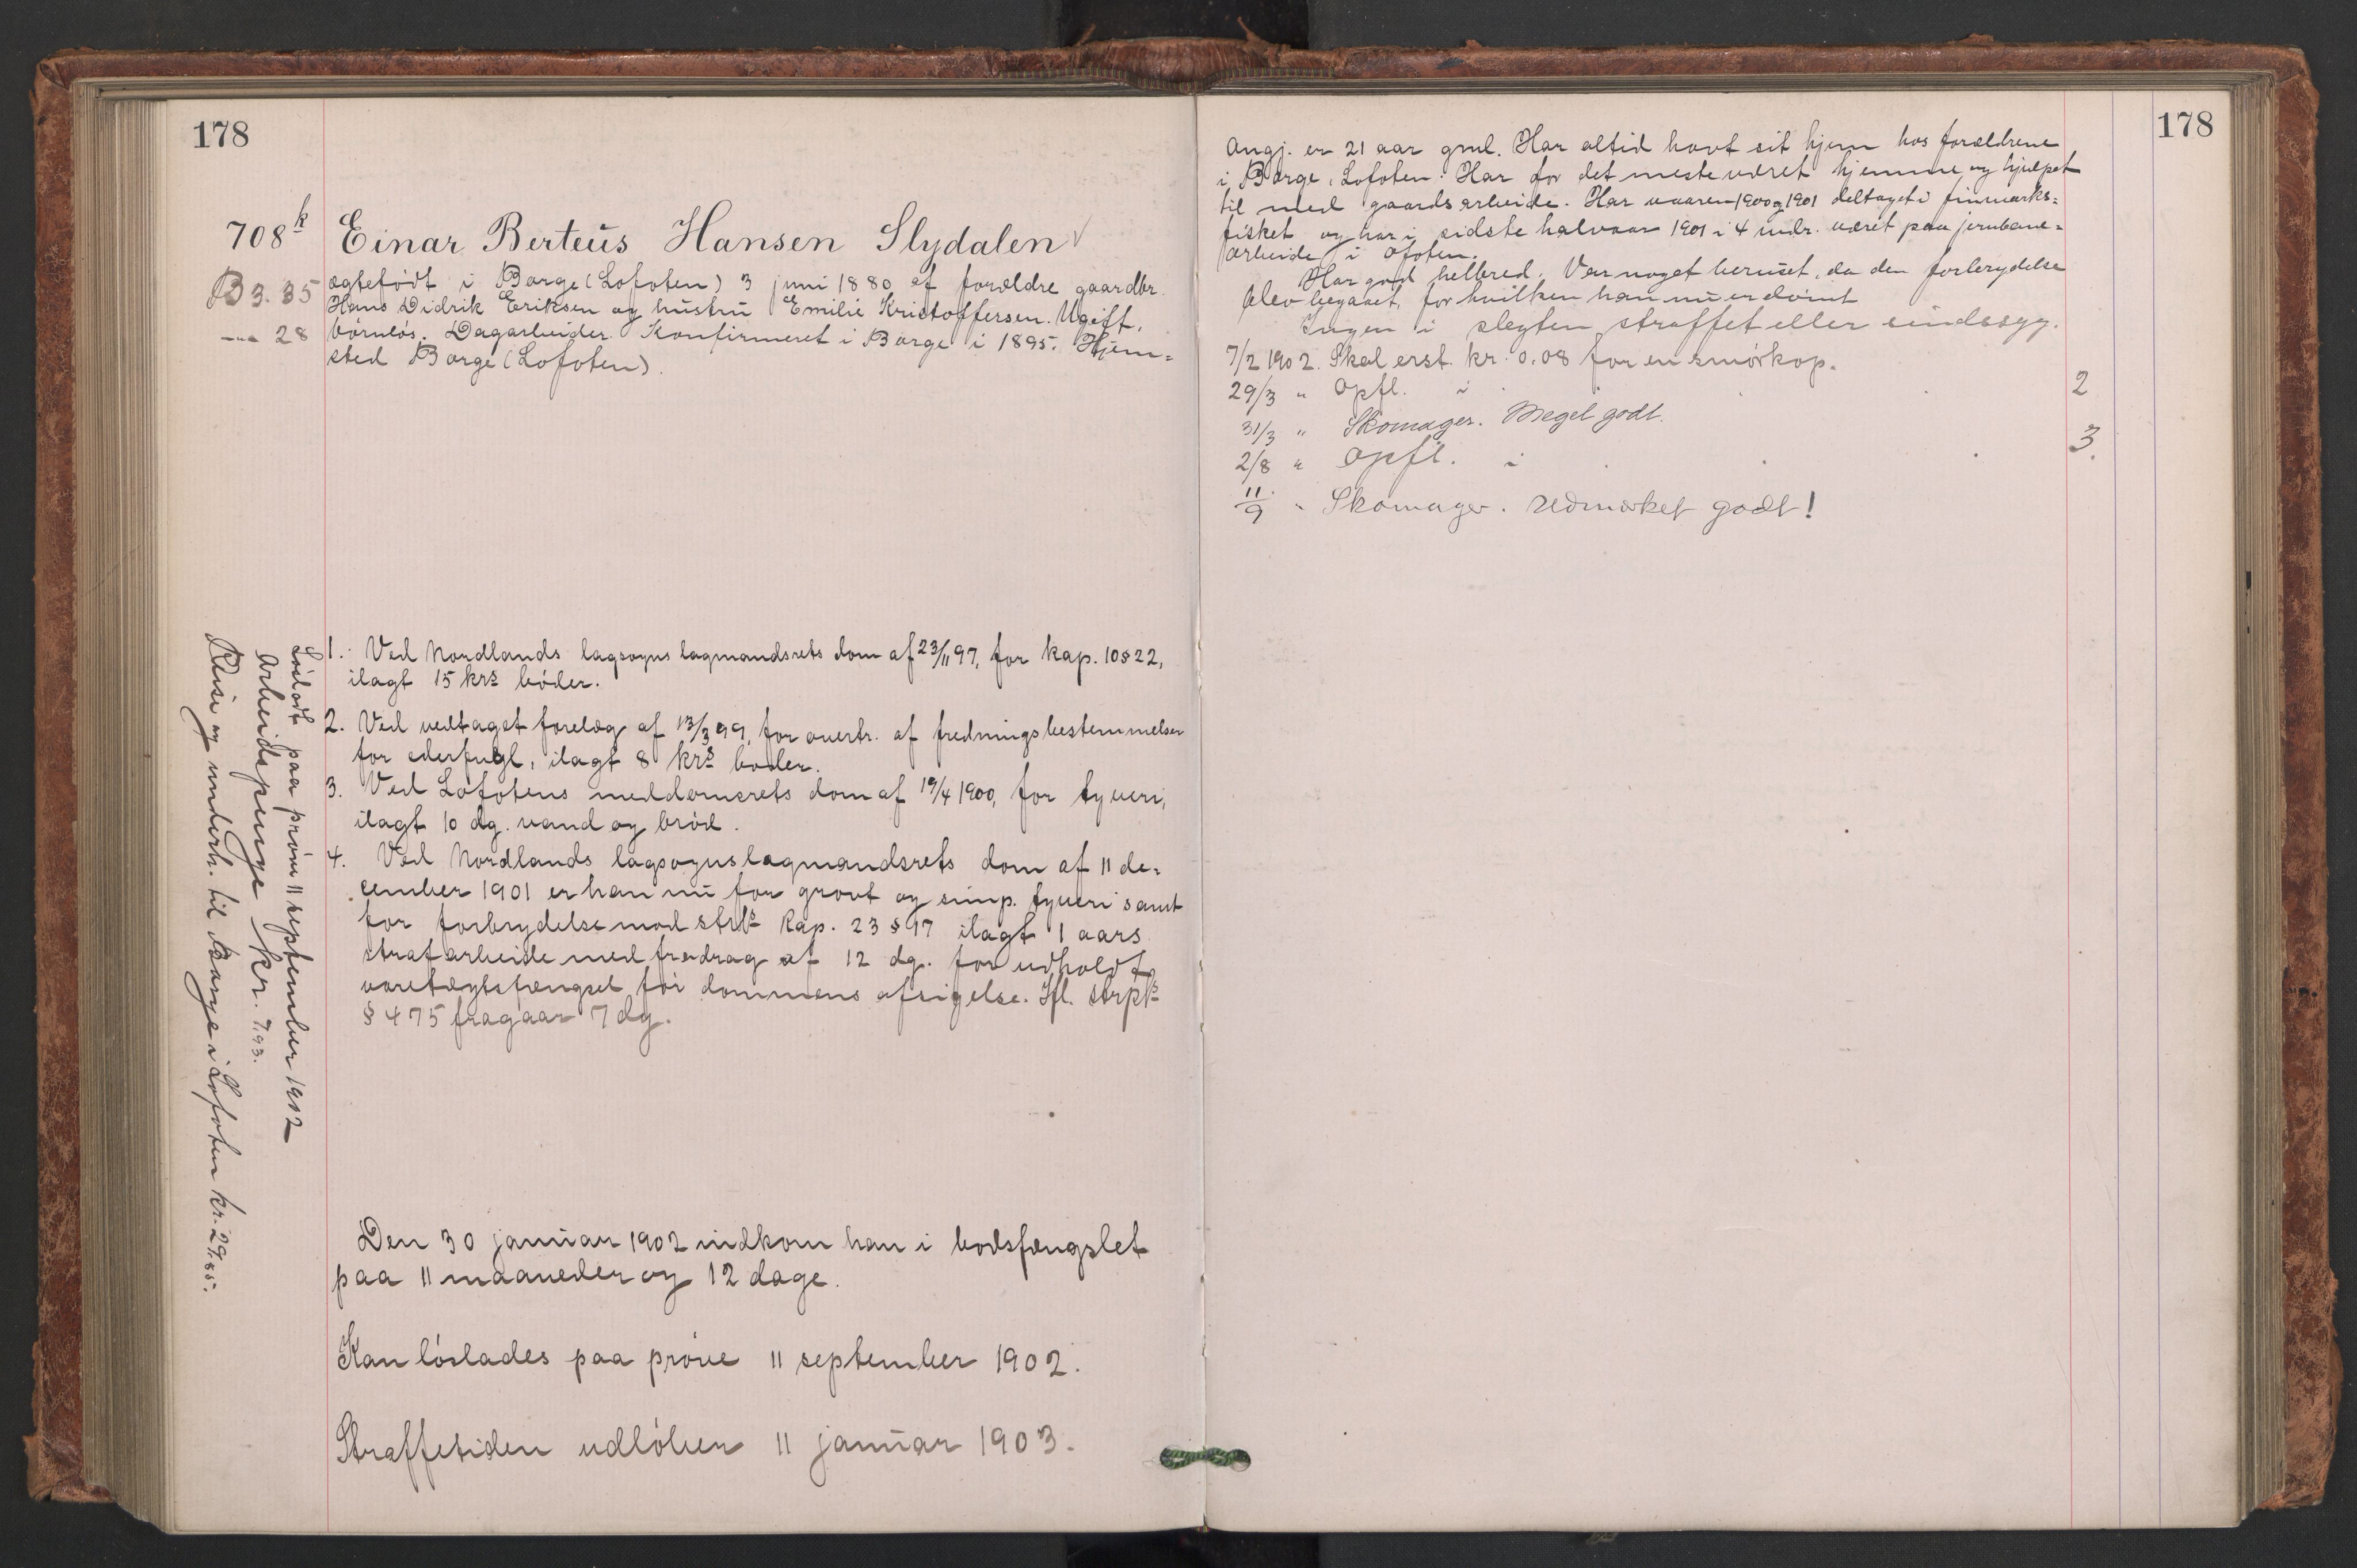 178
708 k Einar Berteus Hansen Slydalen √
B 3. 35
28
ægtefødt i Borge (Lofoten) 3 juni 1880 af forældre gaardbr.
Hans Didrik Eriksen og hustru Emilie Kristoffersen. Ugift,
børnløs. Dagarbeider. Konfirmeret i Borge i 1895. Hjem=
sted Borge (Lofoten).
1. Ved Nordlands lagsogns lagmandsrets dom af 23/11 97, for kap. 10 § 22,
ilagt 15 krs bøder.
2. Ved vedtaget forelæg af 13/3 99, for overtr. af fredningsbestemmelser
for ederfugl, ilagt 8 krs bøder.
3. Ved Lofotens meddomsrets dom af 19/4 1900, for tyveri,
ilagt 10 dg. vand og brød.
4. Ved Nordlands lagsogns lagmandsrets dom af 11 de=
cember 1901 er han nu for grovt og simp. tyveri samt
for forbrydelse mod strls kap. 23 § 97 ilagt 1 aars
strafarbeide med fradrag af 12 dg. for udholdt
varetægtsfængsel før dommens afsigelse. Ifl. strpls
§ 475 fragaar 7 dg.
Den 30 januar 1902 indkom han i bodsfængslet
paa 11 maaneder og 12 dage.
Kan løslades paa prøve 11 september 1902.
Straffetiden udløber 11 januar 1903.
Løsladt paa prøve 11 september 1902
Arbeidspenge kr. 7.93.
Reise og underh. til Borge i Lofoten kr. 29,85.
178
Angj. er 21 aar gml. Har altid havt sit hjem hos forældrene
i Borge, Lofoten. Har for det meste været hjemme og hjulpet
til med gaardsarbeide. Har vaaren 1900 og 1901 deltaget i finmarks=
fisket og har i sidste halvaar 1901 i 4 mdr. været paa jernbane=
arbeide i Ofoten.
Har god helbred. Var noget beruset, da den forbrydelse
blev begaaet, for hvilken han nu er dømt.
Ingen i slegten straffet eller sindssyg.
7/2 1902. Skal erst. kr. 0.08 for en smørkop.
29/3 " Opfl. i . . . 2
31/3 " Skomager. Meget godt.
2/8 " Opfl. i . . . 3.
11/9 " Skomager. Udmærket godt!